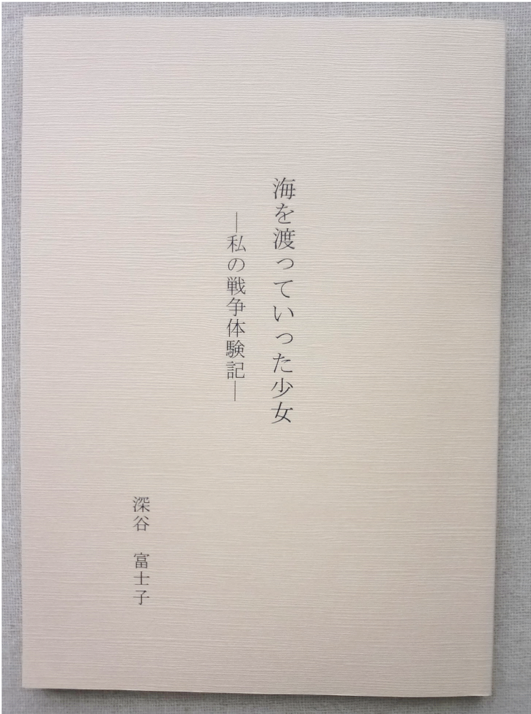 海を渡っていった少女
―私の戦争体験記―
深谷　富士子